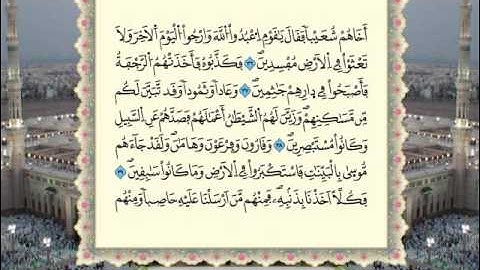 أَخَاهُمْ شُعَيْباً فَقَالَ يَٰقَوْمِ اِعْبُدُواْ اللَّهَ وَارْجُواْ الْيَوْمَ اَلَاخِرَ وَلَا
تَعْثَوْاْ فِي اِلَارْضِ مُفْسِدِينَ ٣٦ فَكَذَّبُوهُ فَأَخَذَتْهُمُ الرَّجْفَةُ
فَأَصْبَحُواْ فِي دِارِهِمْ جَٰثِمِينَ ٣٧ وَعَاداً وَثَمُوداً وَقَد تَّبَيَّنَ لَكُم
مِّن مَّسَٰكِنِهِمْ وَزَيَّنَ لَهُمُ الشَّيْطَٰنُ أَعْمَٰلَهُمْ فَصَدَّهُمْ عَنِ السَّبِيلِ
وَكَانُواْ مُسْتَبْصِرِينَ ٣٨ وَقَٰرُونَ وَفِرْعَوْنَ وَهَٰمَٰنَ وَلَقَدْ جَآءَهُم
مُّوسَىٰ بِالْبَيِّنَٰتِ فَاسْتَكْبَرُواْ فِي اِلَارْضِ وَمَا كَانُواْ سَٰبِقِينَ ٣٩
فَكُلّاً اَخَذْنَا بِذَنۢبِهِۦ فَمِنْهُم مَّنَ اَرْسَلْنَا عَلَيْهِ حَاصِباً وَمِنْهُم